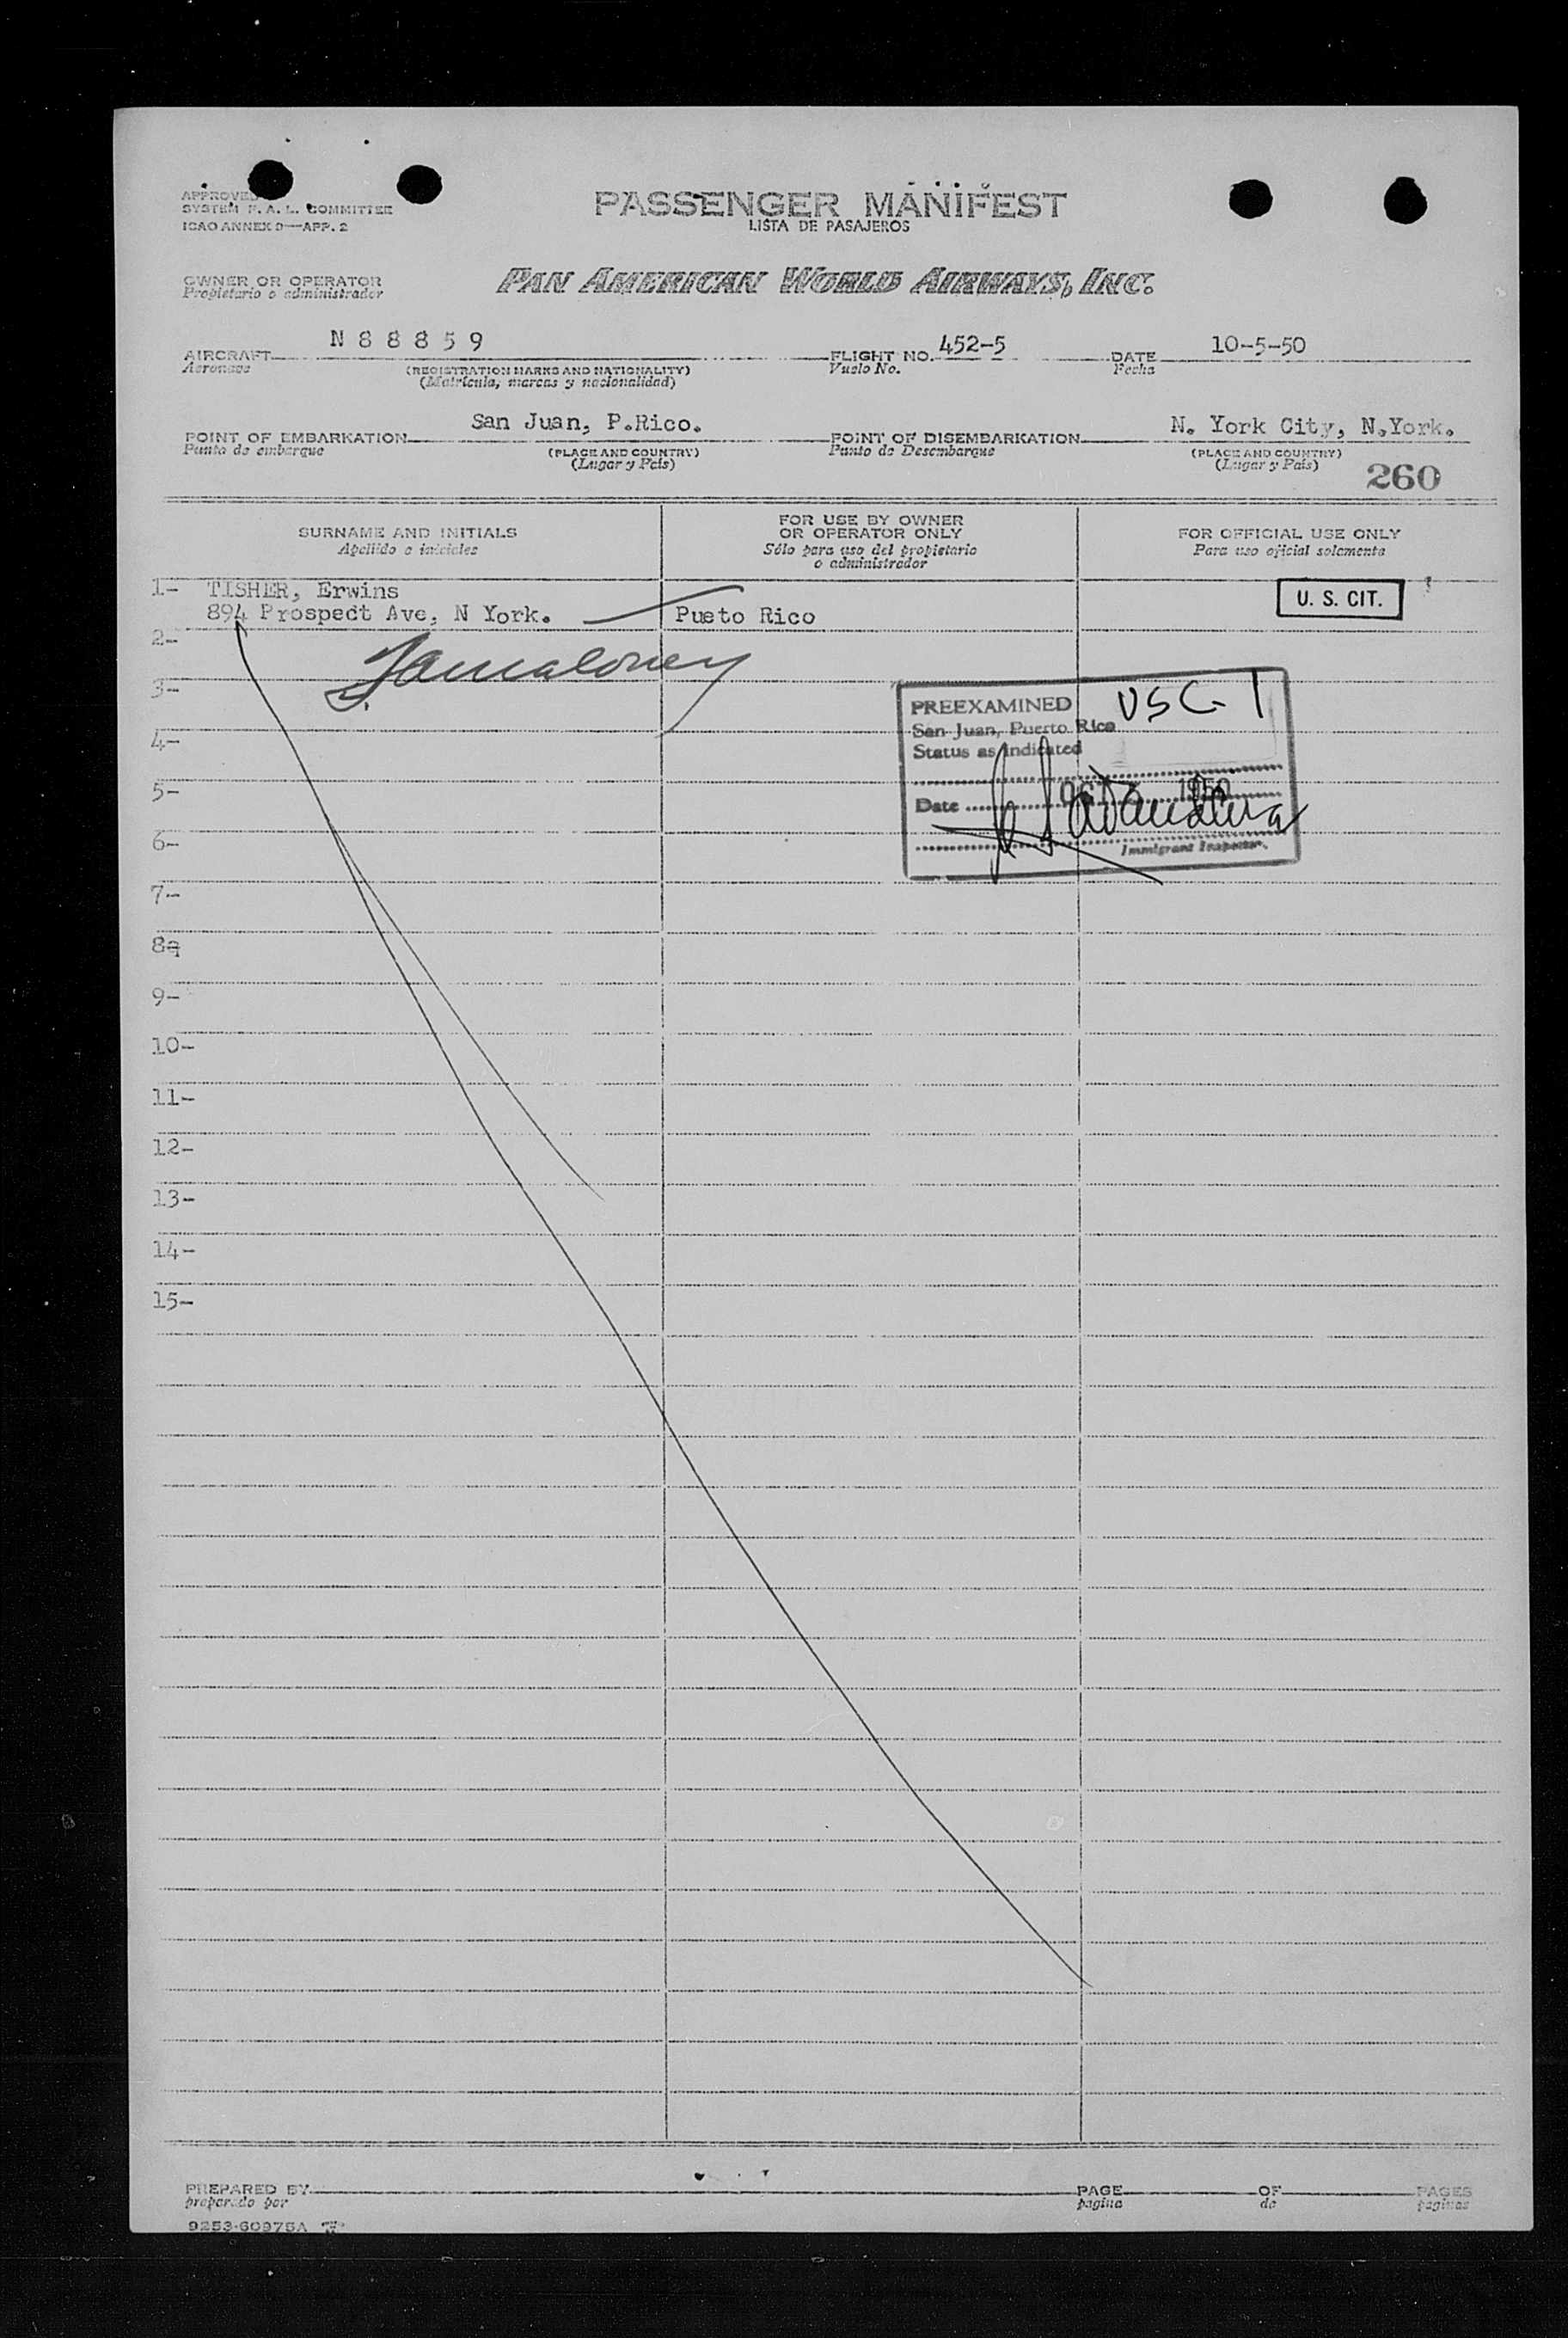 APPROVED
SYSTEM F. A. L. COMMITTEE
ICAO ANNEX 9—APP. 2
PASSENGER MANIFEST
LISTA DE PASAJEROS
OWNER OR OPERATOR
Propietario o administrador
PAN AMERICAN WORLD AIRWAYS, INC.
AIRCRAFT N 8 8 8 5 9 FLIGHT NO. 452-5 DATE 10-5-50
Aeronave (REGISTRATION MARKS AND NATIONALITY) Vuelo No. Fecha
(Matrícula, marcas y nacionalidad)
POINT OF EMBARKATION San Juan, P.Rico. POINT OF DISEMBARKATION N. York City, N.York.
Punto de embarque (PLACE AND COUNTRY) Punto de Desembarque (PLACE AND COUNTRY)
(Lugar y País) (Lugar y País)
260
SURNAME AND INITIALS
Apellido e iniciales
FOR USE BY OWNER
OR OPERATOR ONLY
Sólo para uso del propietario
o administrador
FOR OFFICIAL USE ONLY
Para uso oficial solamente
1- TISHER, Erwins
894 Prospect Ave, N York. Pueto Rico
U. S. CIT.
2-
3-
PREEXAMINED USC-1
San Juan, Puerto Rico
Status as indicated
Date 1950
Immigrant Inspector.
4-
5-
6-
7-
8q
9-
10-
11-
12-
13-
14-
15-
PREPARED BY PAGE OF PAGES
preparado por pagina de paginas
9253-60975A